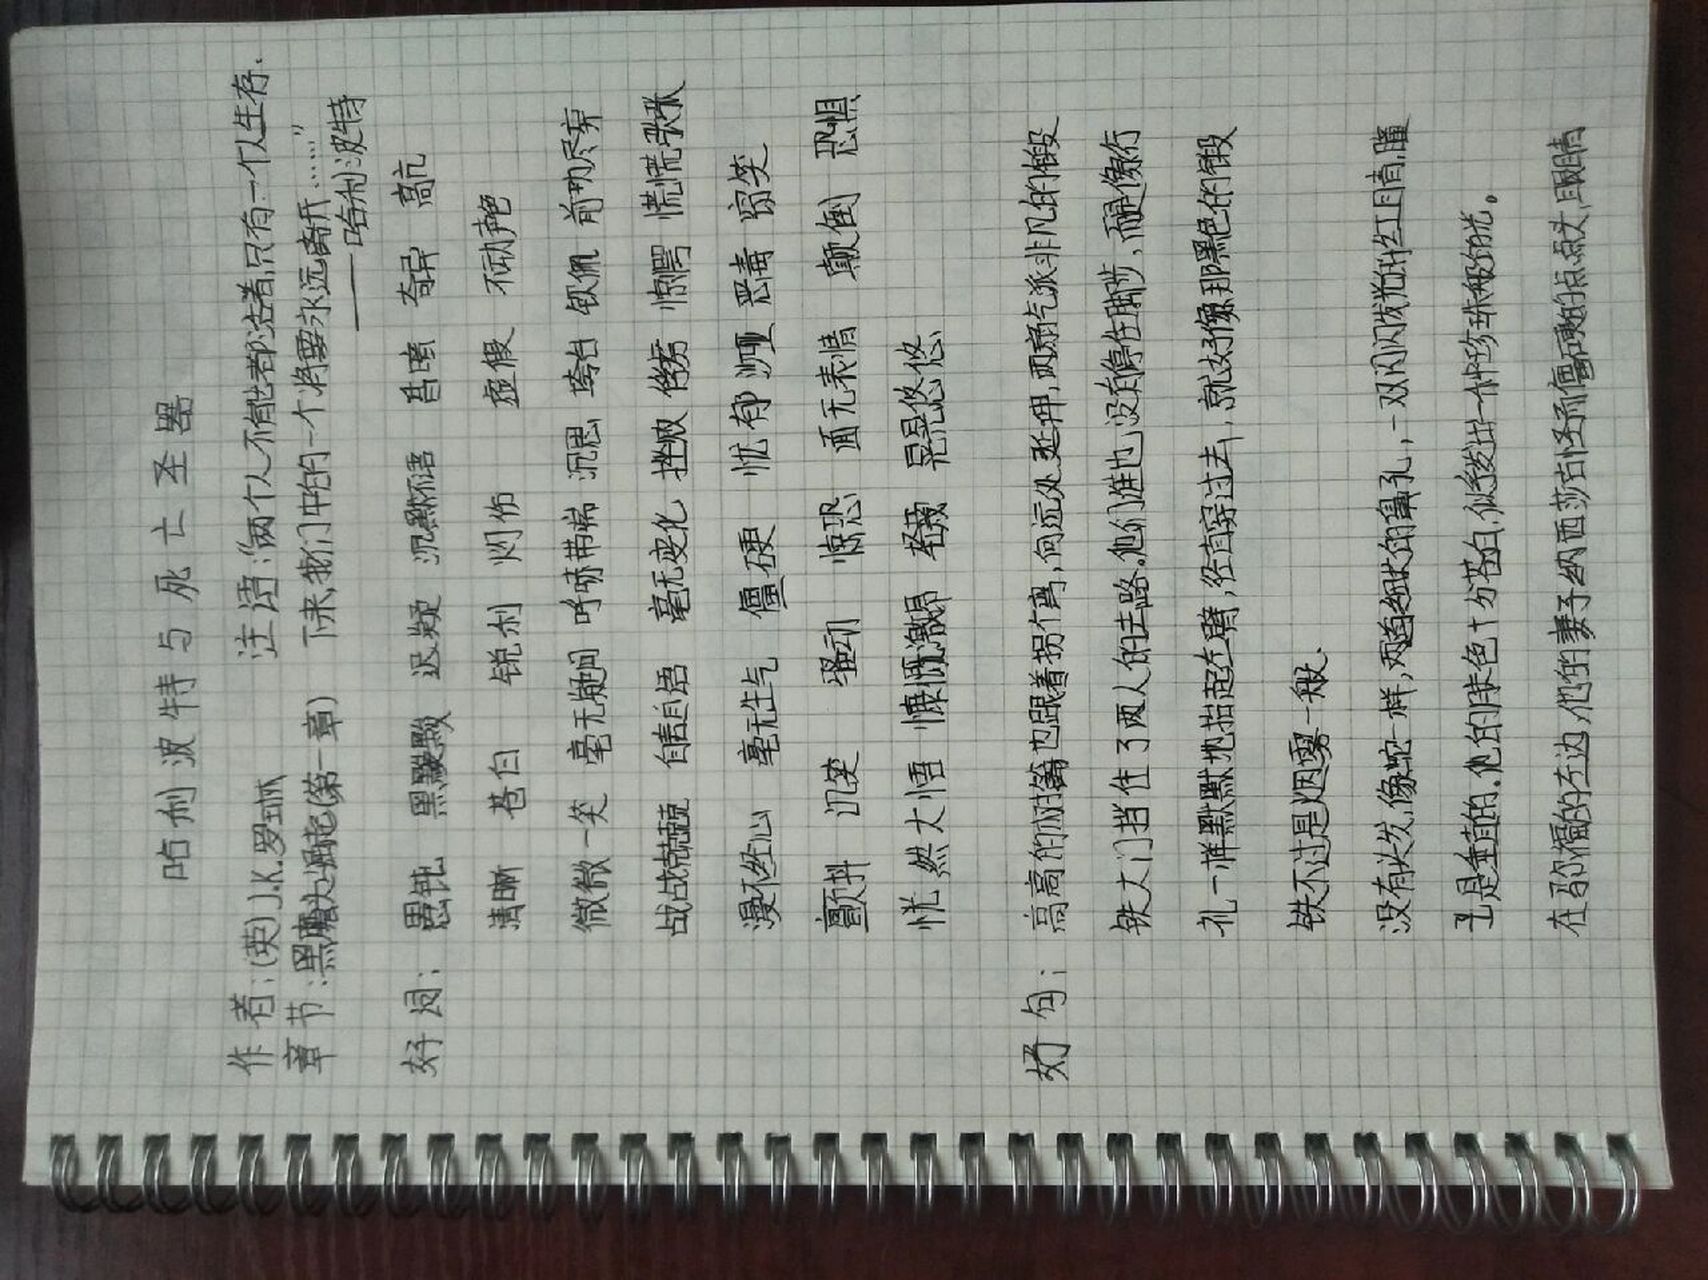 哈利波特与死亡圣器
作者:(英)J.K.罗琳 注语:“两个人不能都活着,只有一个人生存.
章节:黑魔头崛起(第一章) 下来,我们中的一个将要永远离开……”
——哈利波特
好词: 愚钝 黑黢黢 迟疑 沉默不语 昔日 奇异 高亢
清晰 苍白 锐利 灼伤 虚假 不动声色
微微一笑 毫无疑问 呼哧带喘 沉思 垮台 钦佩 前功尽弃
战战兢兢 自言自语 毫无变化 挫败 惊愕 慌慌张张
漫不经心 毫无生气 僵硬 忧郁 沙哑 恶毒 窃笑
颤抖 讥笑 骚动 惊恐 面无表情 颠倒 恐惧
恍然大悟 慷慨激昂 轻蔑 晃晃悠悠
好句: 高高的树篱也跟着拐了弯,向远处延伸,两扇气派非凡的锻
铁大门挡住了两人的去路。他们谁也没有停住脚步,而是像行
礼一样默默地抬起左臂,径直穿过去,就好像那黑色的锻
铁不过是烟雾一般.
没有头发,像蛇一样,两道细长的鼻孔,一双闪闪发光的红眼睛,瞳
孔是垂直的.他的肤色十分苍白,似乎发出一种珍珠般的光。
在马尔福的左边,他的妻子纳西莎古怪而僵硬的点点头,眼睛